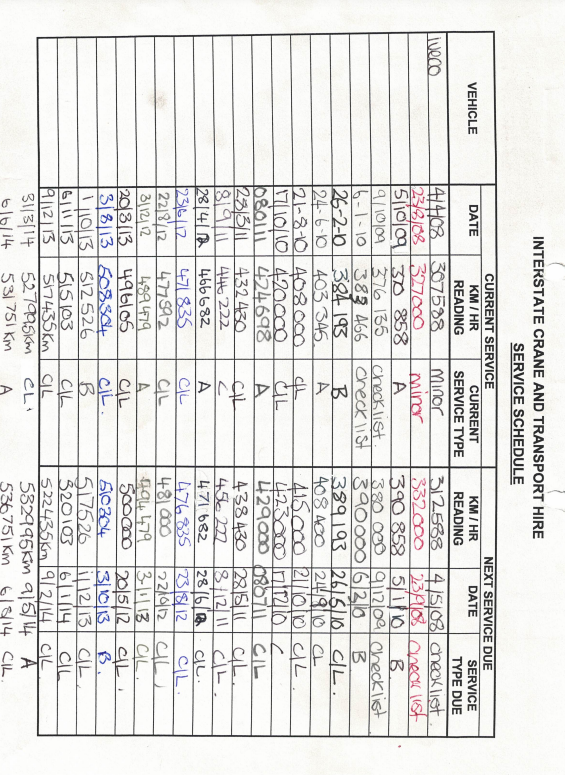 INTERSTATE CRANE AND TRANSPORT HIRE
SERVICE SCHEDULE
VEHICLE CURRENT SERVICE NEXT SERVICE DUE
DATE KM / HR READING CURRENT SERVICE TYPE KM / HR READING DATE SERVICE TYPE DUE
iveco 4/4/08 307588 minor 312588 4/5/08 checklist
23/8/08 327000 minor 332000 23/9/08 checklist
5/10/09 370 858 A 390 858 5/1/10 B
9/10/09 376 135 checklist 380 000 9/12/09 checklist
6-1-10 383 466 checklist 390000 6/2/10 B
26-2-10 384 193 B 389193 26/5/10 C/L.
24-6-10 403 345 A 408 400 24/9/10 CL
21-8-10 408 000 C/L 415000 21/10/10 C/L
17/10/10 420000 C/L 423000 17/12/10 C
080111 424698 A 429000 080711 C/L
28/3/11 432430 C/L 438430 28/5/11 C/L.
8/9/11 446 222 8/12/11 C/L.
28/4/12 466682 A 471682 28/6/12 C/L.
23/6/12 471 835 C/L 476835 23/8/12 C/L
22/8/12 477892 C/L 481 000 22/9/12 C/L
3/12/12 489479 A 494479 3/1/13 C/L.
20/3/13 496105 C/L 500000 20/5/12 C/L.
3/8/13 505304 C/L. 510304 3/10/13 B.
1/10/13 512526 B 517526 1/12/13 C/L.
6/11/13 515103 C/L 520103 6/1/14 C/L
9/12/13 517435km C/L 522435km 9/2/14 C/L
31/3/14 527995km CL. 532995km 9/5/14 A
6/6/14 531751km A 536751km 6/8/14 C/L.